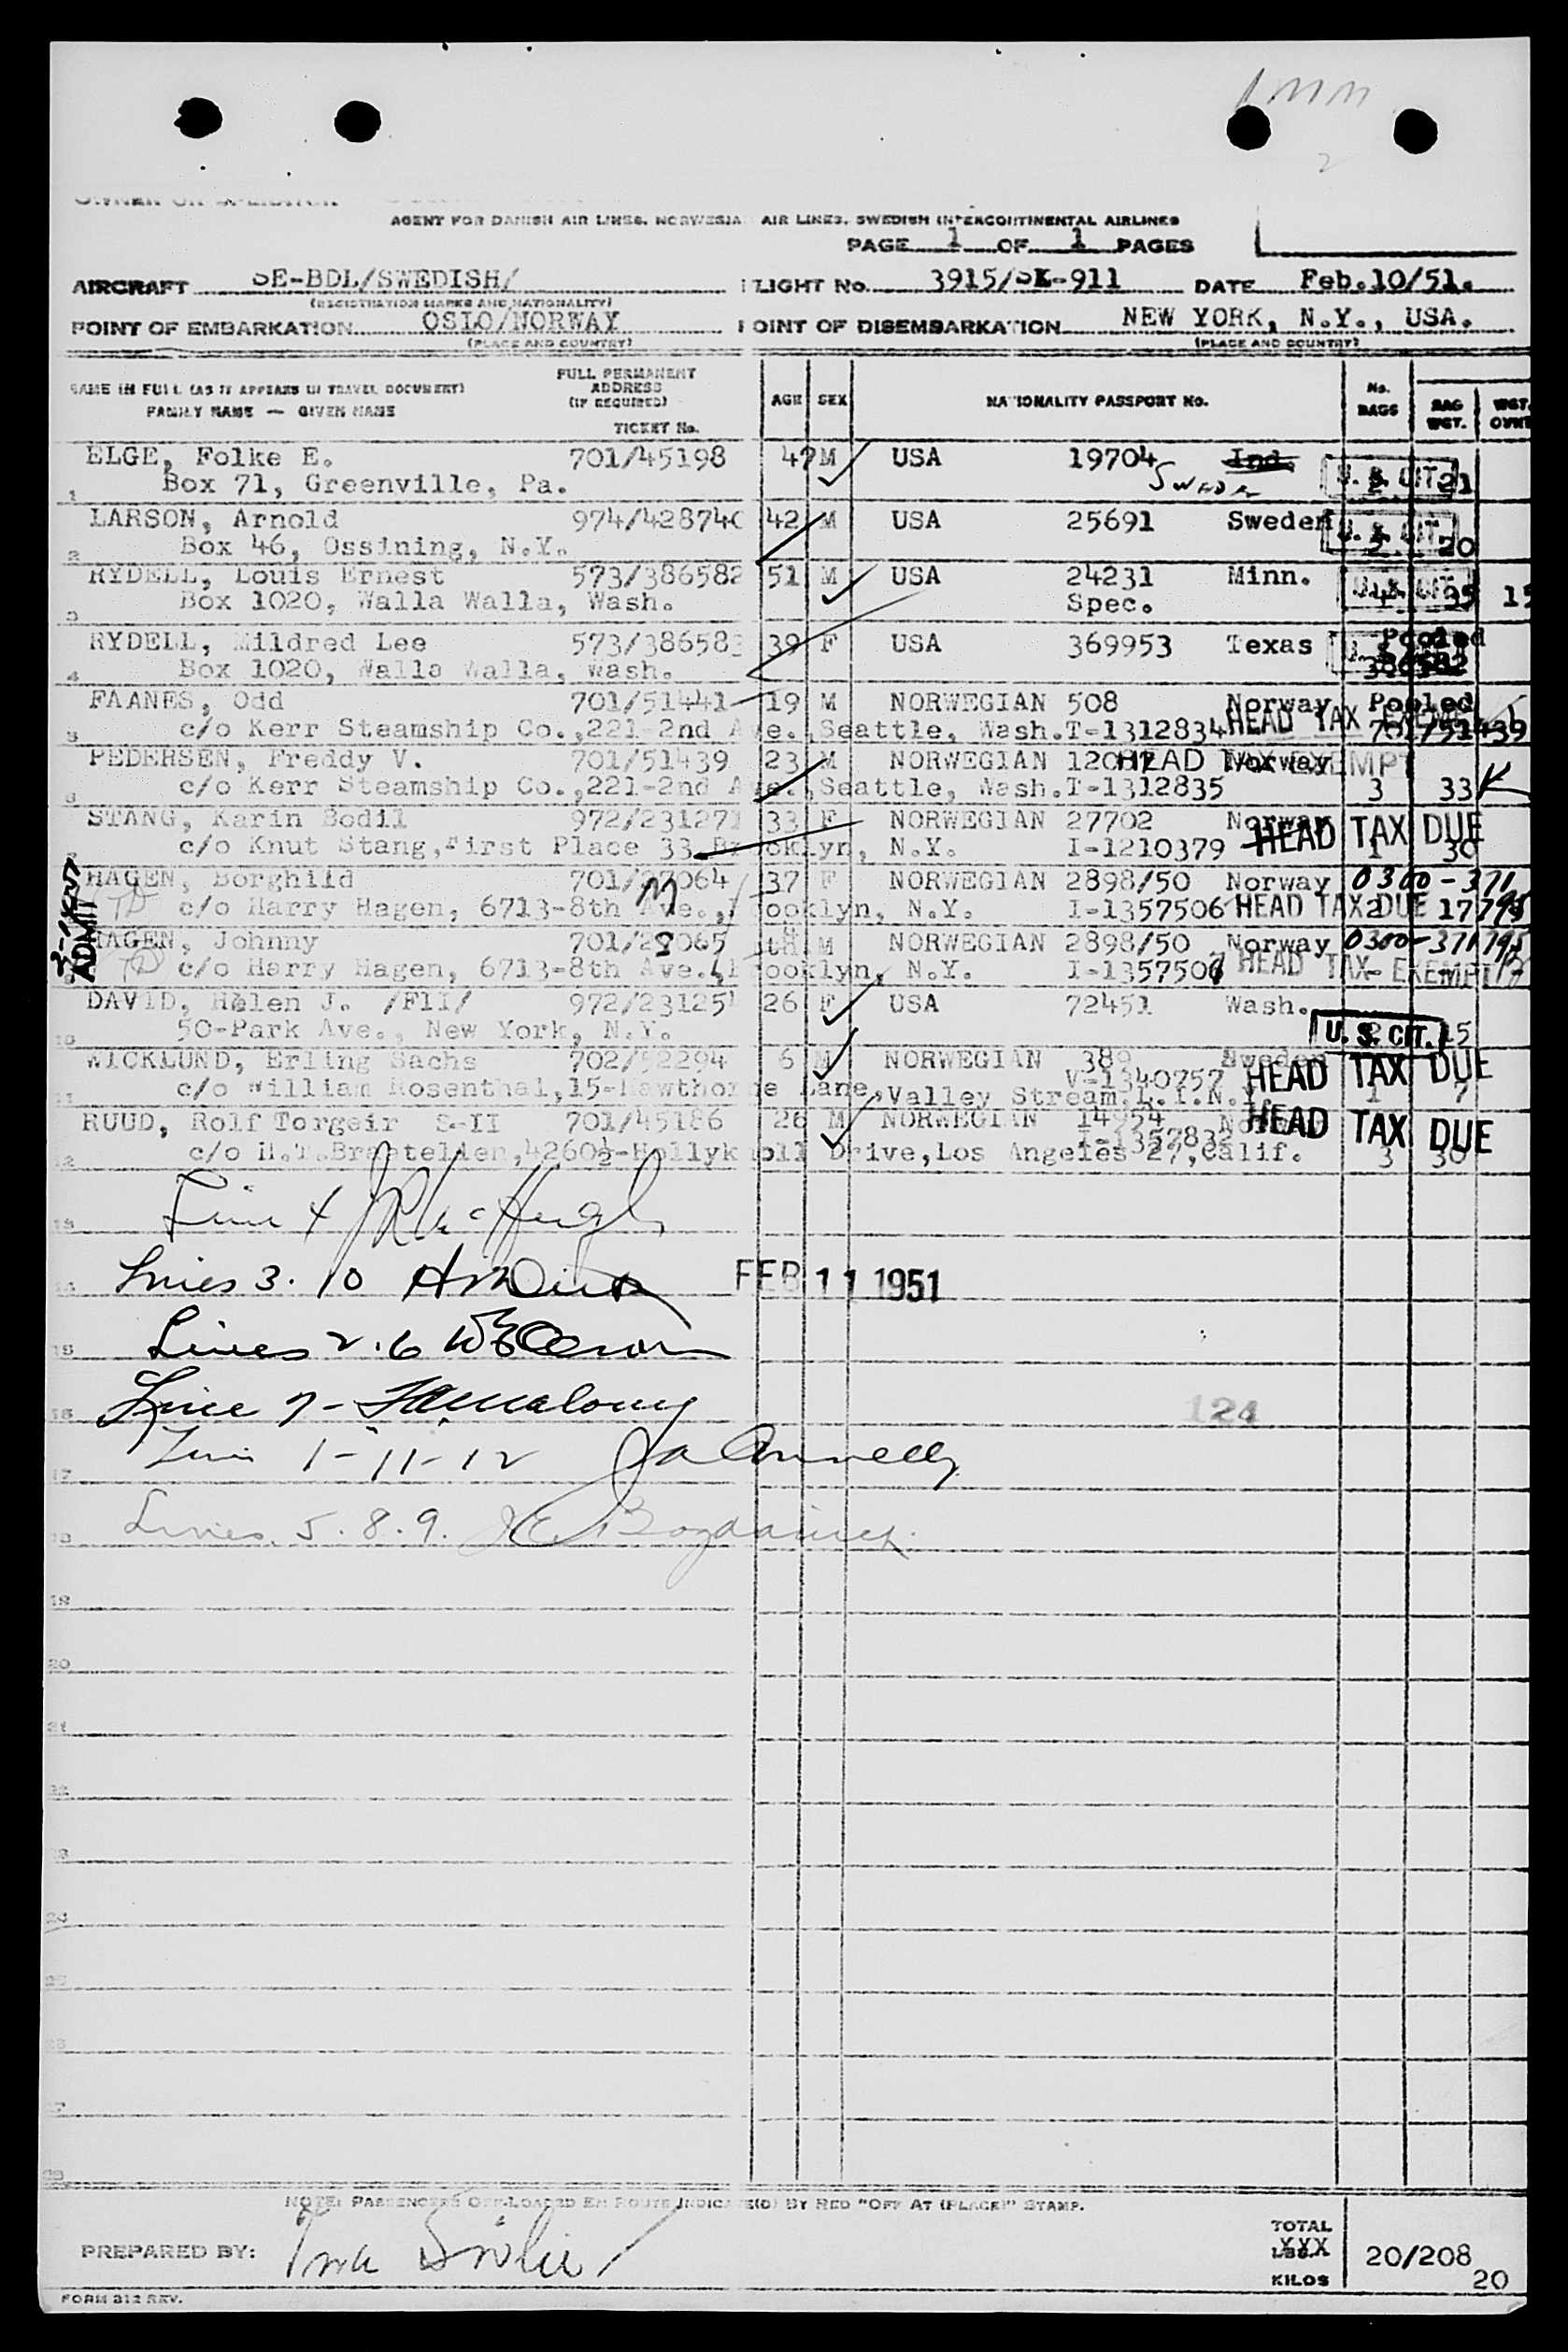 AGENT FOR DANISH AIR LINES, NORWEGIA AIR LINES, SWEDISH INTERCONTINENTAL AIRLINES
PAGE 1 OF 1 PAGES
AIRCRAFT SE-BDL/SWEDISH/ FLIGHT No. 3915/SK-911 DATE Feb.10/51.
(REGISTRATION MARKS AND NATIONALITY)
POINT OF EMBARKATION OSLO/NORWAY POINT OF DISEMBARKATION NEW YORK, N.Y., USA.
(PLACE AND COUNTRY) (PLACE AND COUNTRY)
NAME IN FULL (AS IT APPEARS IN TRAVEL DOCUMENT) FULL PERMANENT ADDRESS (IF REQUIRED) AGE SEX NATIONALITY PASSPORT No. No. BAGS BAG WGT. WGT.
FAMILY NAME — GIVEN NAME TICKET No.
ELGE, Folke E. 701/45198 47 M USA 19704 Ind.
1 Box 71, Greenville, Pa. Sweden U. S. CIT. 21
LARSON, Arnold 974/428740 42 M USA 25691 Sweden U. S. CIT.
2 Box 46, Ossining, N.Y. 20
RYDELL, Louis Ernest 573/386582 51 M USA 24231 Minn. U. S. CIT.
3 Box 1020, Walla Walla, Wash. Spec. 15
RYDELL, Mildred Lee 573/386583 39 F USA 369953 Texas Pooled
4 Box 1020, Walla Walla, Wash. 386582
FAANES, Odd 701/51441 19 M NORWEGIAN 508 Norway Pooled
5 c/o Kerr Steamship Co.,221-2nd Ave. Seattle, Wash.T-1312834 HEAD TAX EXEMPT 701/51439
PEDERSEN, Freddy V. 701/51439 23 M NORWEGIAN Norway HEAD TAX EXEMPT
6 c/o Kerr Steamship Co.,221-2nd Ave., Seattle, Wash.T-1312835 3 33
STANG, Karin Bodil 972/231271 33 F NORWEGIAN 27702 Norway
7 c/o Knut Stang,First Place 33 Brooklyn, N.Y. I-1210379 HEAD TAX DUE 1 30
HAGEN, Borghild 701/27064 37 F NORWEGIAN 2898/50 Norway 0300-371
c/o Harry Hagen, 6713-8th Ave., Brooklyn, N.Y. I-1357506 HEAD TAX DUE 2 17
ADMIT
HAGEN, Johnny 701/28065 M NORWEGIAN 2898/50 Norway 0300-371795
9 c/o Harry Hagen, 6713-8th Ave., Brooklyn, N.Y. I-1357507 HEAD TAX EXEMPT
DAVID, Helen J. /FII/ 972/23125 26 F USA 72451 Wash.
10 50-Park Ave., New York, N.Y. U. S. CIT. 15
WICKLUND, Erling Sachs 702/52294 6 M NORWEGIAN 389 Sweden
11 c/o William Rosenthal,15-Hawthorne Lane,Valley Stream.L.I.N.Y. V-1340757 HEAD TAX DUE 1 7
RUUD, Rolf Torgeir S-II 701/45186 26 M NORWEGIAN 14954
12 c/o H.T.Braatelien,4260½-Hollyknoll Drive,Los Angeles 27,Calif. I-1357832 HEAD TAX DUE 3 30
13 Line 4 J R McHugh
14 Lines 3. 10 FEB 11 1951
15 Lines 2.6
16 Line 7- Maloney 124
17 Line 1-11-12 Connelly
18 Lines 5.8.9.
19
20
21
22
23
24
25
26
27
28
NOTE: PASSENGERS OFF-LOADED EN ROUTE INDICATE(D) BY RED "OFF AT (PLACE)" STAMP.
PREPARED BY: TOTAL LBS. KILOS 20/208 20
FORM 312 REV.